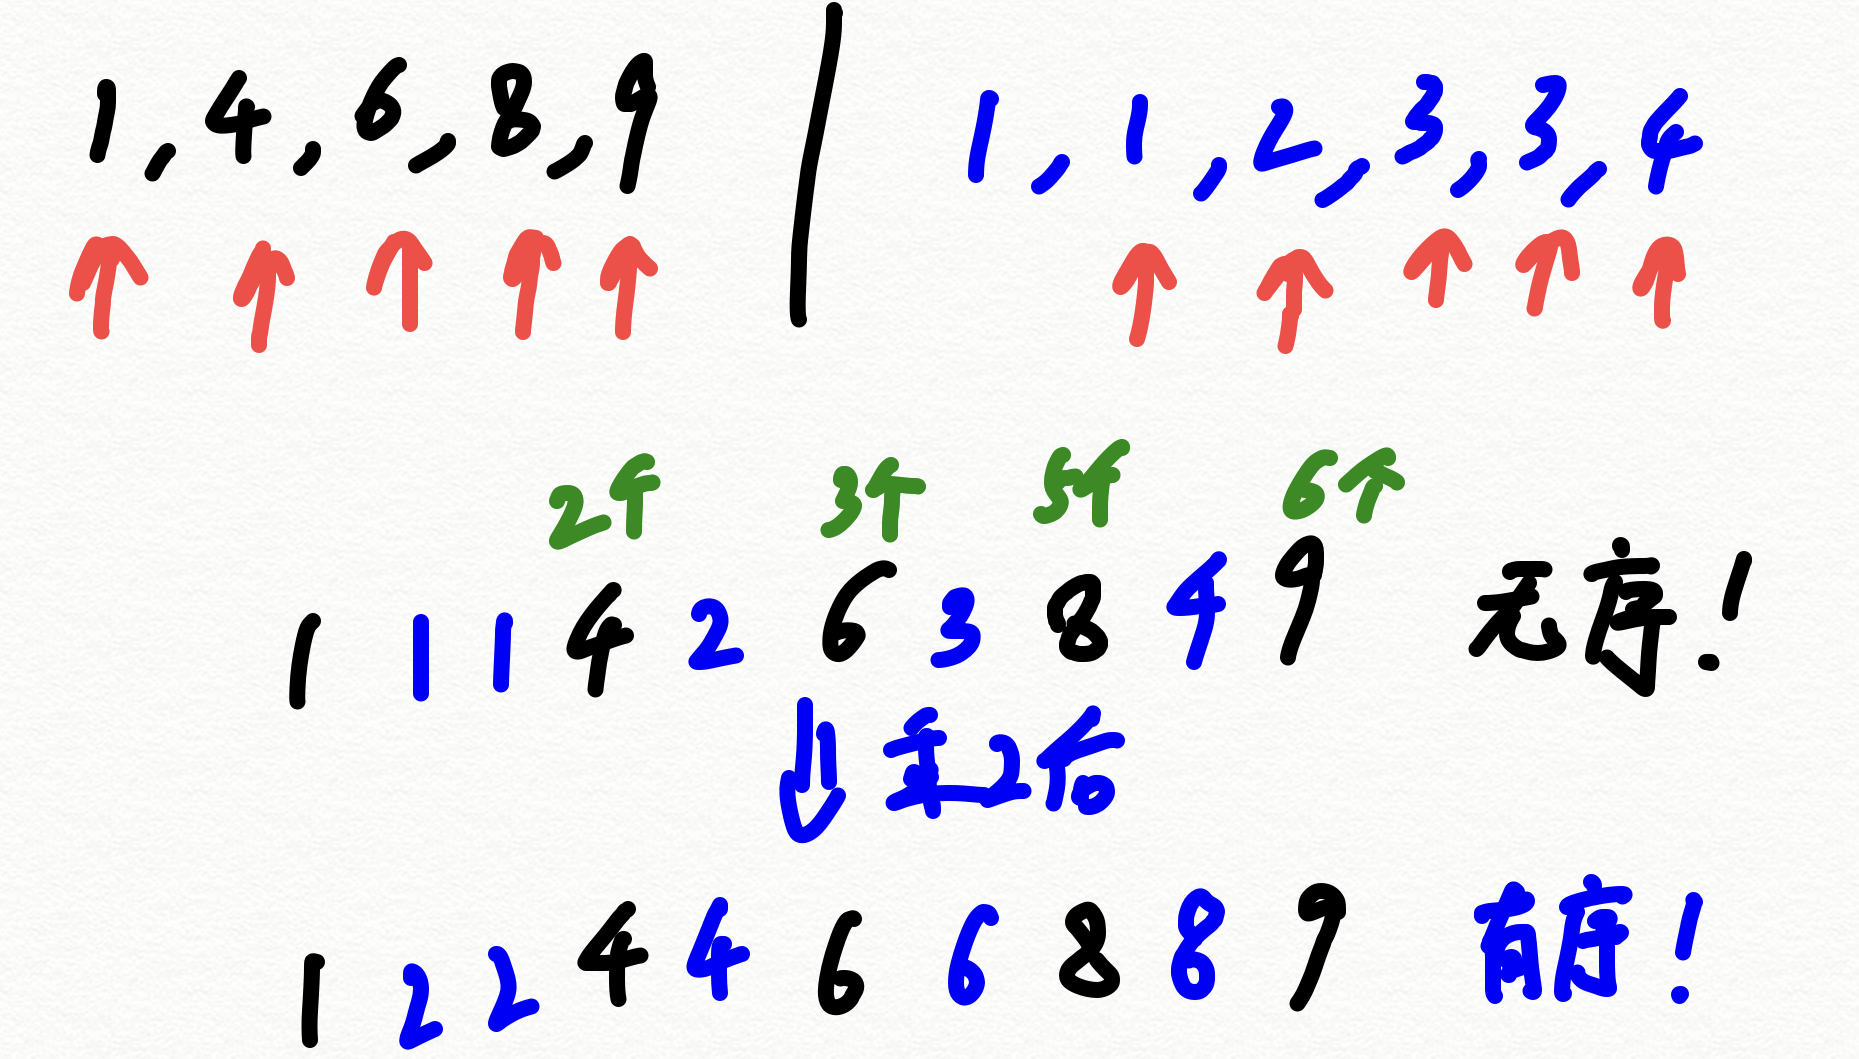 1,4,6,8,9 1,1,2,3,3,4
2个 3个 5个 6个
1 1 1 4 2 6 3 8 4 9 无序!
乘2后
1 2 2 4 4 6 6 8 8 9 有序!